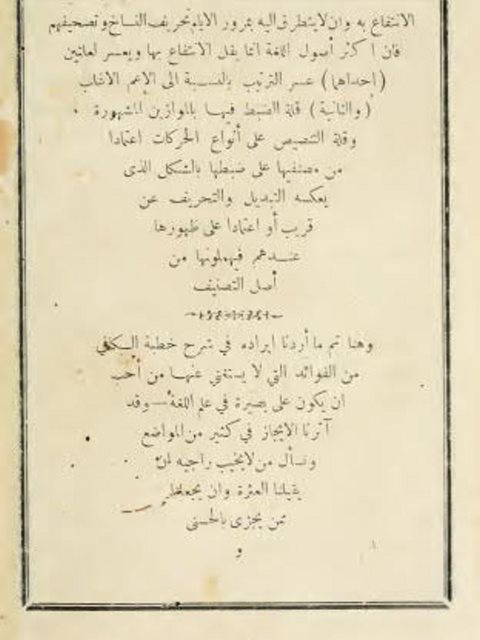 الانتفاع به وان لا يتطرق اليه بمرور الايام تحريف النساخ وتصحيفهم
فان اكثر أصول اللغة انما يقل الانتفاع بها ويعسر لعلتين
(احداهما) عسر الترتيب بالنسبة الى الاعم الاغلب
(والثانية) قلة الضبط فيها بالموازين المشهورة
وقلة التنصيص على أنواع الحركات اعتمادا
من مصنفيها على ضبطها بالشكل الذى
يعكسه التبديل والتحريف عن
قريب أو اعتمادا على ظهورها
عندهم فيهملونها من
أصل التصنيف
وهنا تم ما أردنا ايراده في شرح خطبة الكافي
من الفوائد التي لا يستغني عنها من أحب
ان يكون على بصيرة في علم اللغة — وقد
آثرنا الايجاز في كثير من المواضع
ونسأل من لا يخيب راجيه ان
يقيلنا العثرة وان يجعلنا
ممن يجزى بالحسنى
و